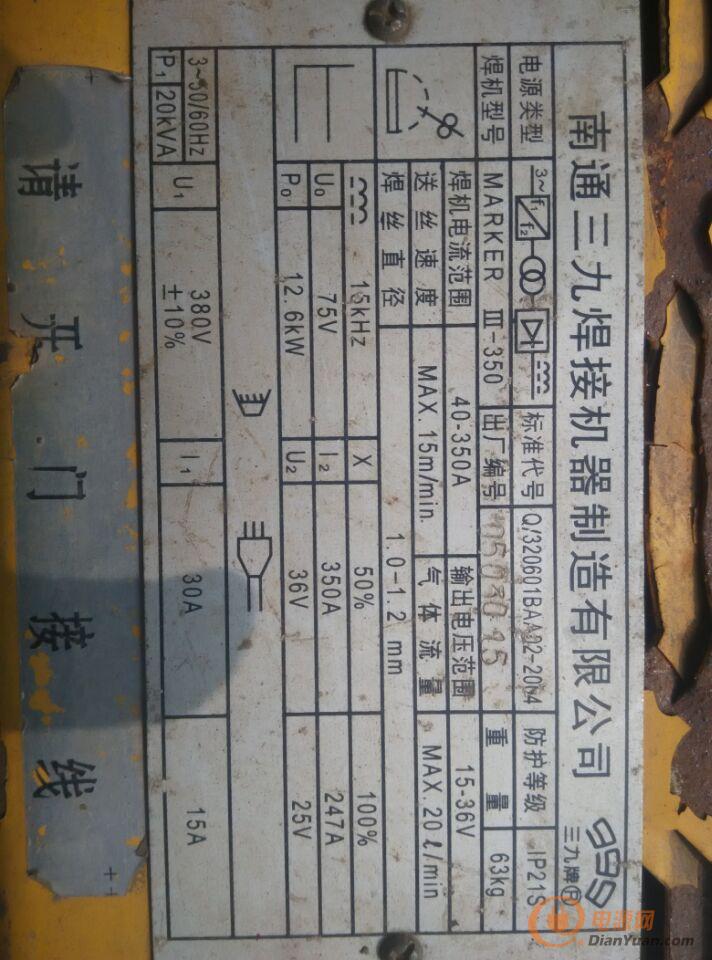 南通三九焊接机器制造有限公司
三九牌®
电源类型 3~ f₁ f₂ 标准代号 Q/320601BAA02-2004 防护等级 IP21S
焊机型号 MARKER Ⅲ-350 出厂编号 重量 63kg
焊机电流范围 40-350A 输出电压范围 15-36V
送丝速度 MAX.15m/min. 气体流量 MAX.20ℓ/min
焊丝直径 1.0-1.2 mm
15kHz X 50% 100%
U₀ 75V I₂ 350A 247A
P₀ 12.6kW U₂ 36V 25V
3~50/60Hz U₁ 380V ±10% I₁ 30A 15A
P₁ 20kVA
请开门接线
电源网
DianYuan.com